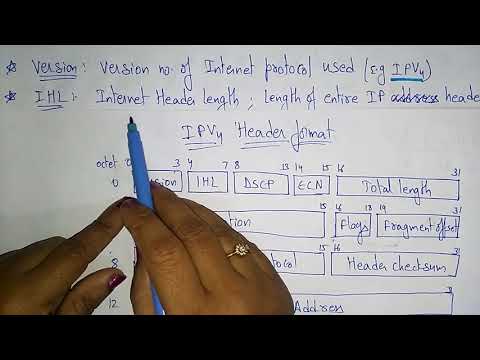 ☆ Version : Version no. of Internet protocol used (e.g IPV4)
☆ IHL : Internet Header length ; Length of entire IP address header
IPV4 Header format
octet 3 4 7 8 13 14 15 16 31
0 IHL DSCP ECN Total length
15 16 18 19 31
Flags Fragment offset
15 16 31
8 Header checksum
12 Address